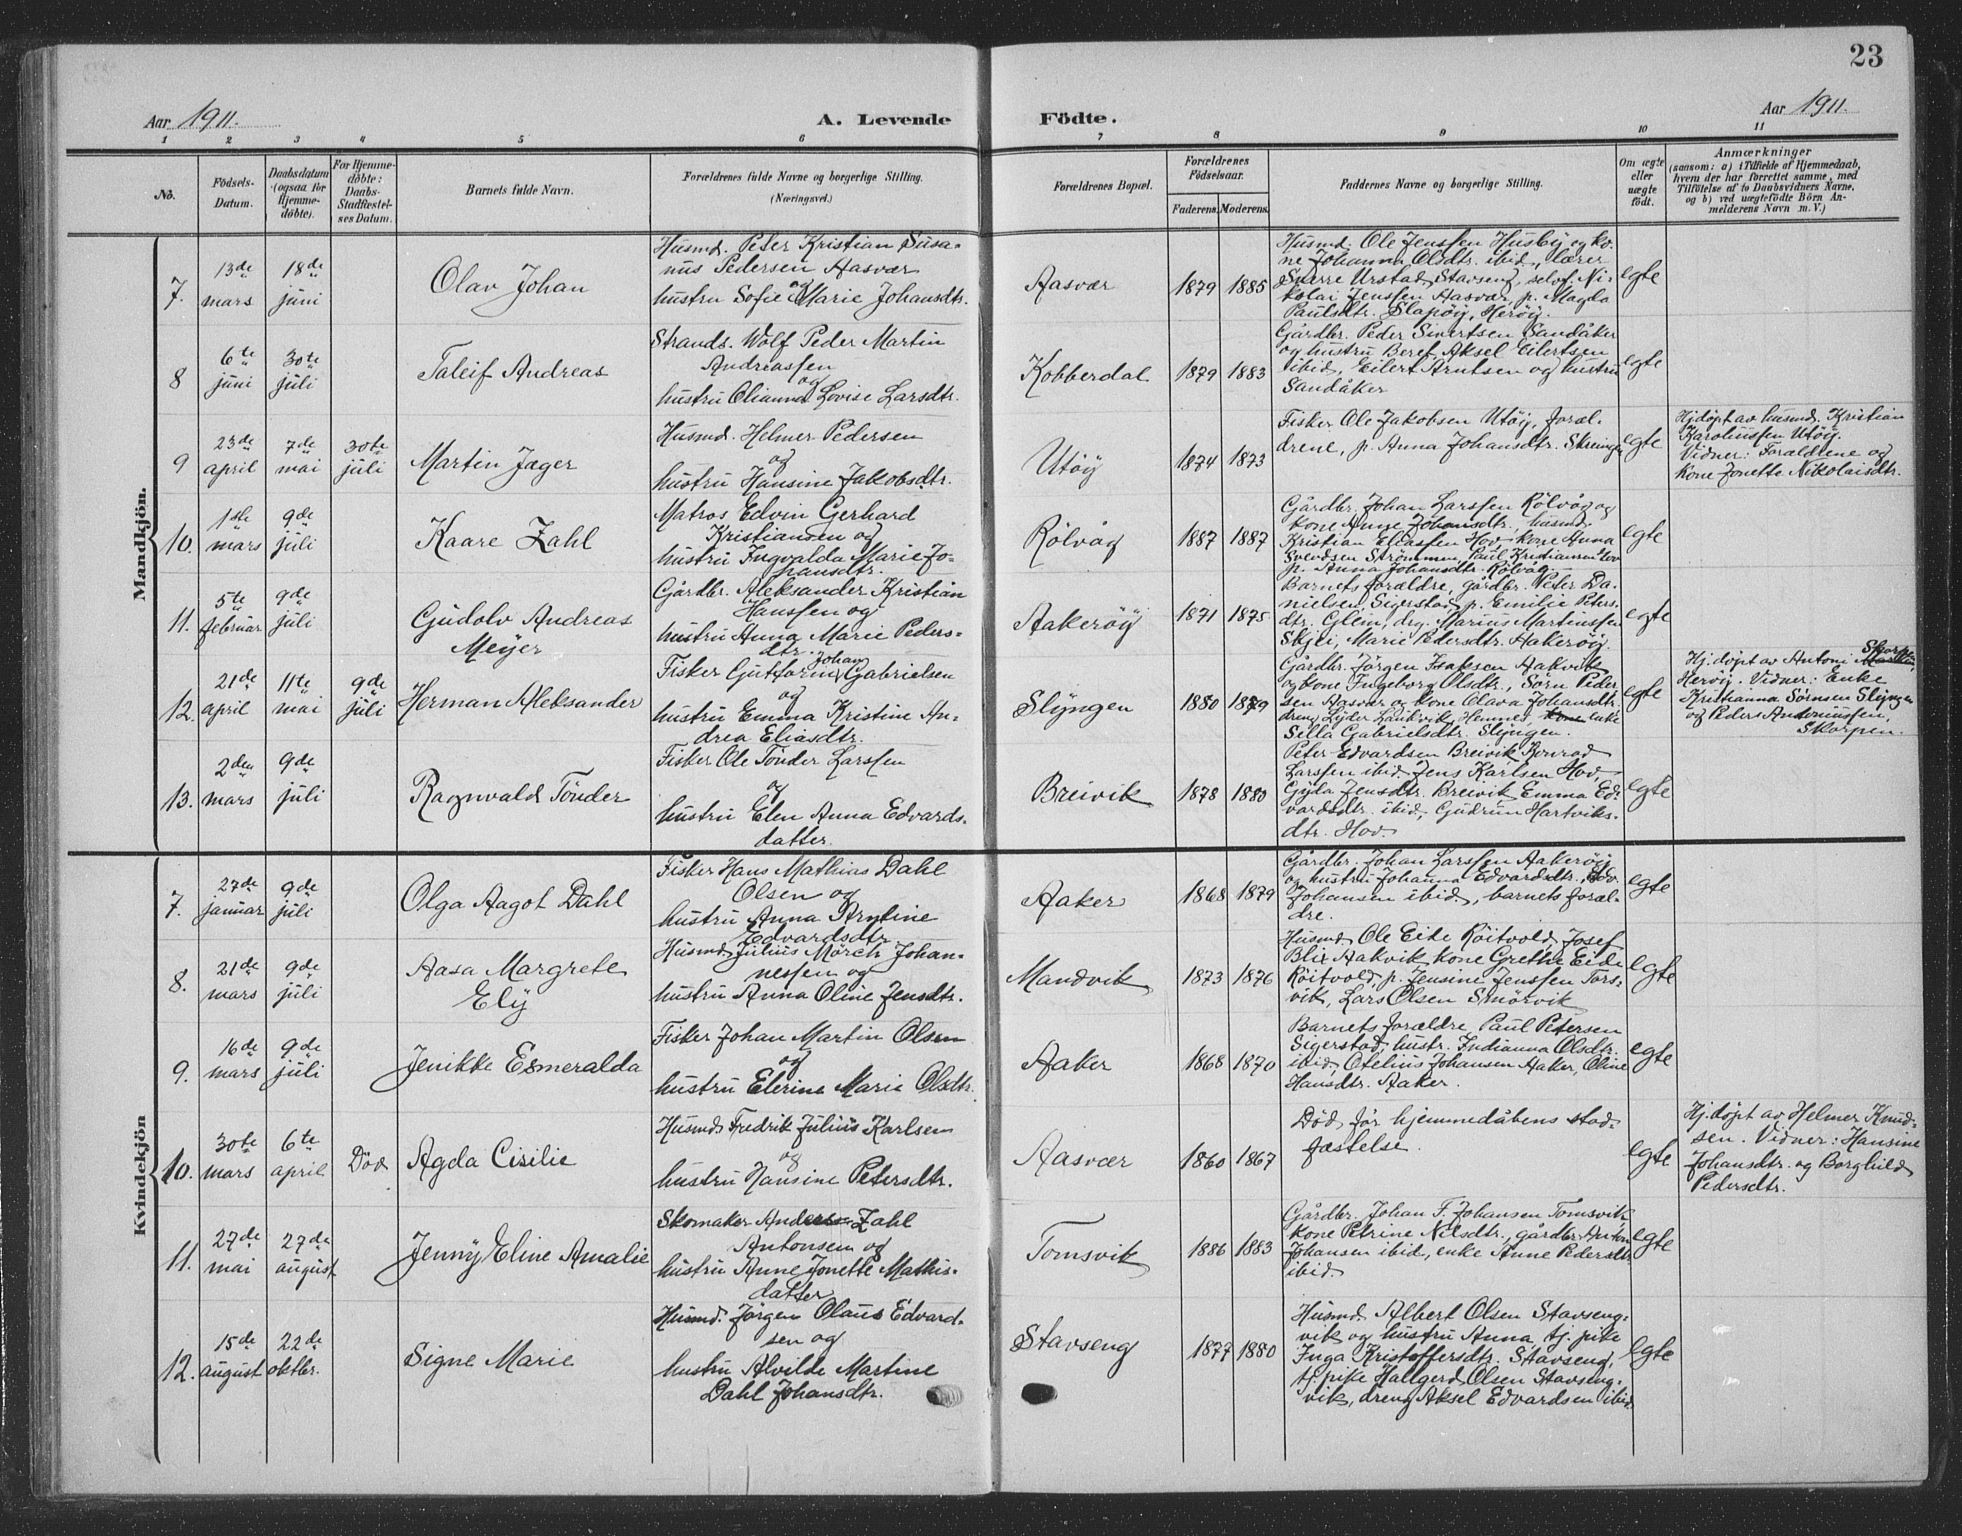 23
Aar 1911.
A. Levende Födte.
Aar 1911.
1 2 3 4 5 6 7 8 9 10 11
No.
Födsels-Datum.
Daabsdatum (ogsaa for Hjemmedöbte).
For Hjemmedöbte: Daabs-Stadfæstelses Datum.
Barnets fulde Navn.
Forældrenes fulde Navne og borgerlige Stilling.
(Næringsvei.)
Forældrenes Bopæl.
Forældrenes Födselsaar.
Faderens. Moderens.
Faddernes Navne og borgerlige Stilling.
Om ægte eller uægte födt.
Anmærkninger
(saasom: a) i Tilfælde af Hjemmedaab, hvem der har forrettet samme, med Tilföielse af to Daabsvidners Navne, og b) ved uægtefödte Börn Anmelderens Navn m. V.)
Mandkjön.
7. 13de mars
18de juni
Olav Johan
Husmd. Peter Kristian Susa-
nus Pedersen Aasvær
og
hustru Sofie Marie Johansdtr.
Aasvær
1879 1885
Husmd. Ole Jenssen Husby og ko-
ne Johanna Olsdtr. ibid, lærer
Sverre Urstad Stavseng, selvf. Ni-
kolai Jenssen Aasvær, p. Magda
Paulsdtr. Slapöy, Heröy.
egte
8 6te juni
30te juli
Taleif Andreas
Strands. Wolf Peder Martin
Andreassen
og
hustru Olianna Lovise Larsdtr.
Kobberdal
1879 1883
Gårdbr. Peder Sivertsen Sandåker
og hustru Beref, Aksel Eilertsen
ibid, Eilert Arntsen og hustru
Sandåker
egte
9 23de april
7de mai
30te juli
Martin Jæger
Husmd. Helmer Pedersen
og
hustru Hansine Jakobsdtr.
Utöy
1874 1873
Fisker Ole Jakobsen Utöy, foræl-
drene, p. Anna Johansdtr. Skeinga
egte
Hj.döpt av husmd. Kristian
Karoliussen Utöy.
Vidner: Forældrene og
kone Jonette Nikolaisdtr.
10. 1ste mars
9de juli
Kaare Zahl
Matros Edvin Gerhard
Kristiansen og
hustru Ingvalda Marie Jo-
hansdtr.
Rölvåg
1887 1887
Gårdbr. Johan Larssen Rölvåg og
kone Anne Johansdtr., husmd.
Kristian Eliassen Hov, kone Anna
Svendsen Strömmen, Paul Kristiansen Hov
p. Anna Johansdtr. Rölvåg.
egte
11. 5te februar
9de juli
Gudolv Andreas
Meyer
Gårdbr. Aleksander Kristian
Hanssen og
hustru Anna Marie Peders-
dtr.
Aakeröy
1871 1875
Barnets forældre, gårdbr. Peter Da-
nielsen Sigerstad, p. Emilie Peters-
dtr. Glein, drg. Marius Martenssen
Skjei, Marie Pedersdtr. Aakeröy.
egte
12. 21de april
11te mai
9de juli
Herman Aleksander
Johan
Fisker Guttorm Gabrielsen
og
hustru Emma Kristine An-
drea Eliasdtr.
Slyngen
1880 1879
Gårdbr. Jörgen Isaksen Aakvik
og kone Ingeborg Olsdtr., Sörn Peder-
sen Aasvær og kone Olava Johansdtr.
dreng Lyder Laukvik, Hemnes, kone enke
Silla Gabrielsdtr. Slyngen.
egte
Skorpen
Hj.döpt av Antoni
Heröy. Vidner: Enke
Kristianna Sörnsen Slyngen
og Peder Antoniussen,
Skorpen.
13. 2den mars
9de juli
Ragnvald Tönder
Fisker Ole Tönder Larssen
og
hustru Elen Anna Edvards-
datter.
Breivik
1878 1880
Peter Edvardsen Breivik, Konrad
Larssen ibid, Jens Karlsen Hov,
Gyla Jensdtr. Breivik, Emma Ed-
vardsdtr. ibid, Gudrun Hartviks-
dtr. Hov.
egte
Kvindekjön
7. 27de januar
9de juli
Olga Aagot Dahl
Fisker Hans Mathias Dahl
Olsen og
hustru Anna Arntine
Edvardsdtr.
Aaker
1868 1879
Gårdbr. Johan Larssen Aakeröy
og hustru Johanna Edvardsdtr., Edv.
Johansen ibid, barnets foræl-
dre.
egte
8. 21de mars
9de juli
Aasa Margrete
Ely
Husmd. Julius Mörch Johan-
nessen og
hustru Anna Oline Jensdtr.
Mandvik
1873 1876
Husmd. Ole Eide Röitvold, Josef
Blix Aakvik, kone Grethe Eide
Röitvold, p. Jensine Jenssen Tors-
vik, Lars Olsen Smörvik
egte
9. 16de mars
9de juli
Jenikke Esmeralda
Fisker Johan Martin Olsen
og
hustru Elerine Marie Olsdtr.
Aaker
1868 1870
Barnets forældre, Paul Petersen
Sigerstad, hustr. Indianna Olsdtr.
ibid, Otelius Johansen Aaker, Oline
Hansdtr. Aaker.
egte
10. 30te mars
6te april
Död
Agda Cisilie
Husmd. Fredrik Julius Karlsen
og
hustru Hansine Petersdtr.
Aasvær
1860 1867
Död för hjemmedåbens stad-
fæstelse.
egte
Hj.döpt av Helmer Knud-
sen. Vidner: Hansine
Johansdtr. og Borghild
Pedersdtr.
11. 27de mai
27de august
Jenny Eline Amalie
Skomaker Anders Zahl
Antonsen og
hustru Anne Jonette Mathis-
datter
Tomsvik
1886 1883
Gårdbr. Johan F. Johansen Tomsvik,
kone Petrine Nilsdtr., gårdbr. Anton
Johansen ibid, enke Anne Pedersdtr.
ibid
egte
12. 15de august
22de oktbr.
Signe Marie
Husmd. Jörgen Olaus Edvard-
sen og
hustru Alvilde Martine
Dahl Johansdtr.
Stavseng
1877 1880
Husmd. Albert Olsen Stavseng-
vik og hustru Anna, tj. pike
Inga Kristoffersdtr. Stavseng,
tj. pike Hallgerd Olsen Stavseng-
vik, dreng Aksel Edvardsen ibid.
egte